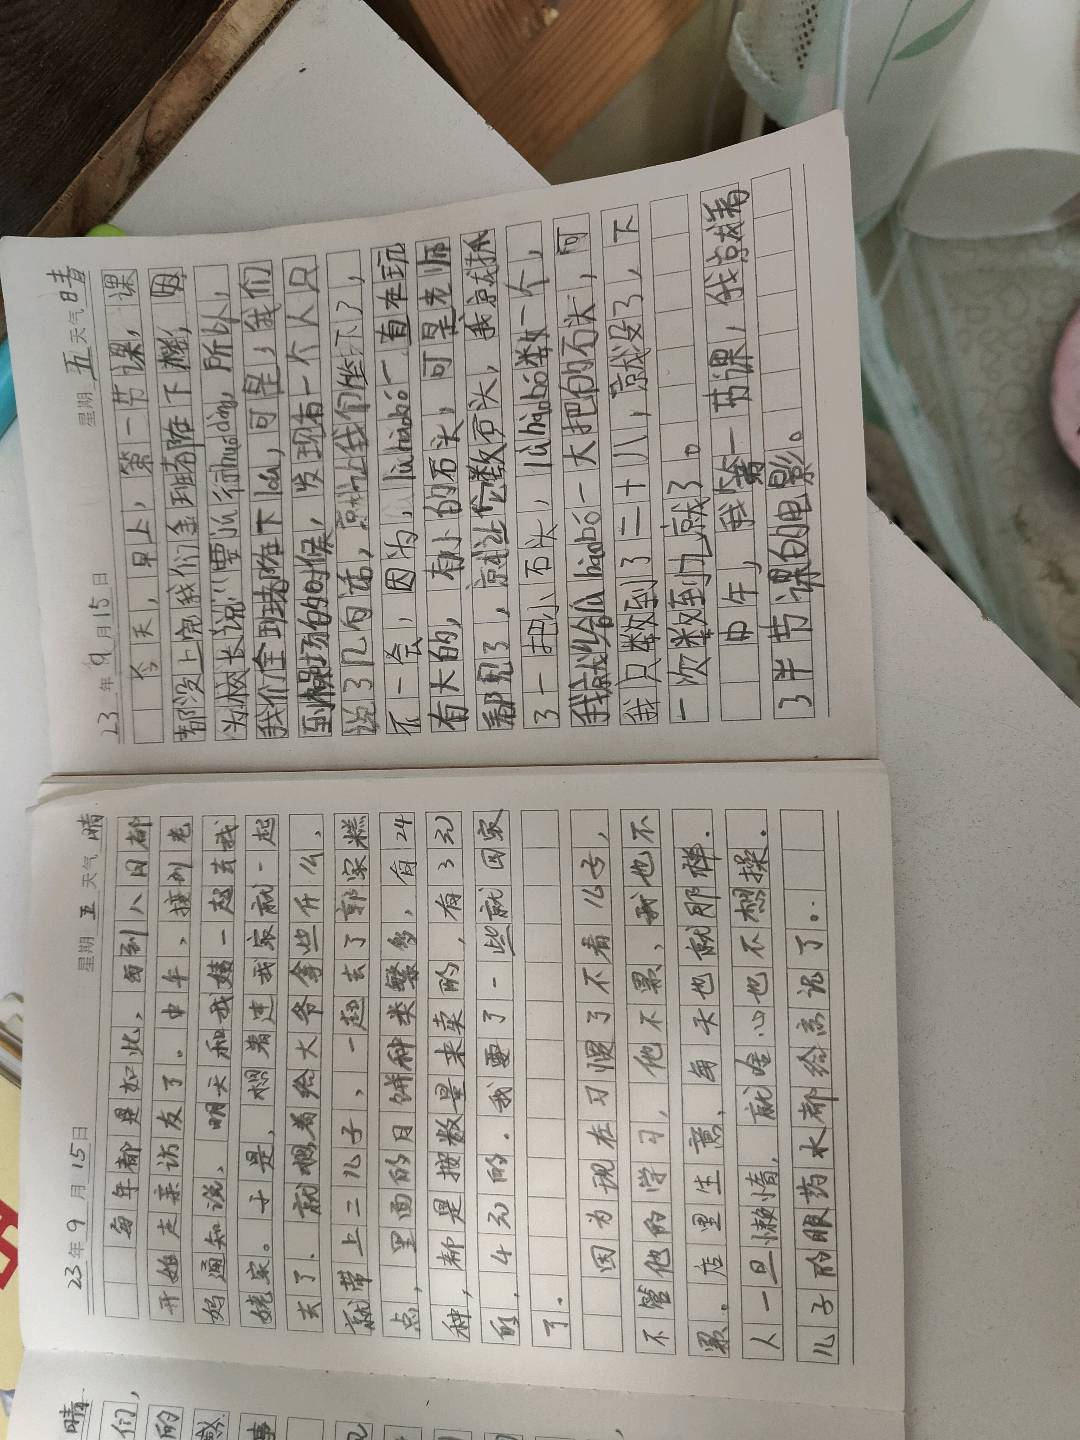 23年9月15日 星期五 天气晴
每年都是如此、每到八月都
开始走亲访友了。中午、接到老
妈通知说、明天和我婧一起去我
姥家。于是、想着连我家就一起
去了、就想着给大爷拿些什么、
就带上二儿子、一起去了郭家糕
点，里面的月饼种类繁多，有24
种，都是按数量来卖的，有3元
的，4元的.我要了一些就回家
了.
因为现在习惯了不看儿子，
不管他的学习，他不累、我也不
累。店里生意、每天也就那样.
人一旦懒惰，就啥心也不想操.
儿子的眼药水都给亮说了..
23年9月15日 星期五 天气晴
今天，早上，第一节课，课
都没上完我们全班都陈下楼，因
为校长说:"要ju行huodong，所以，
我们全班都陈下lou，可是，我们
到操场的时候，发现有一个人只
说了几句话，京尤让我们坐下了，
不一会，因为，liuhaobo一直在玩
有大的，有小的石头，可是老师
看见了，京尤让他数石头，我京尤抓
了一把小石头，liuhaobo数一个，
我京尤给liuhaobo一大把的石头，可
我只数到了二十八，京尤没了，下
一次数到九京尤了。
中午，我第一节课，我京尤看
了半节课的电影。
晴
们，
的
感
事